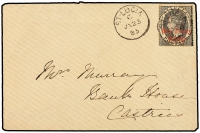 ST LUCIA
C
JY 23
85
Mrs Murray
Bank House
Castries